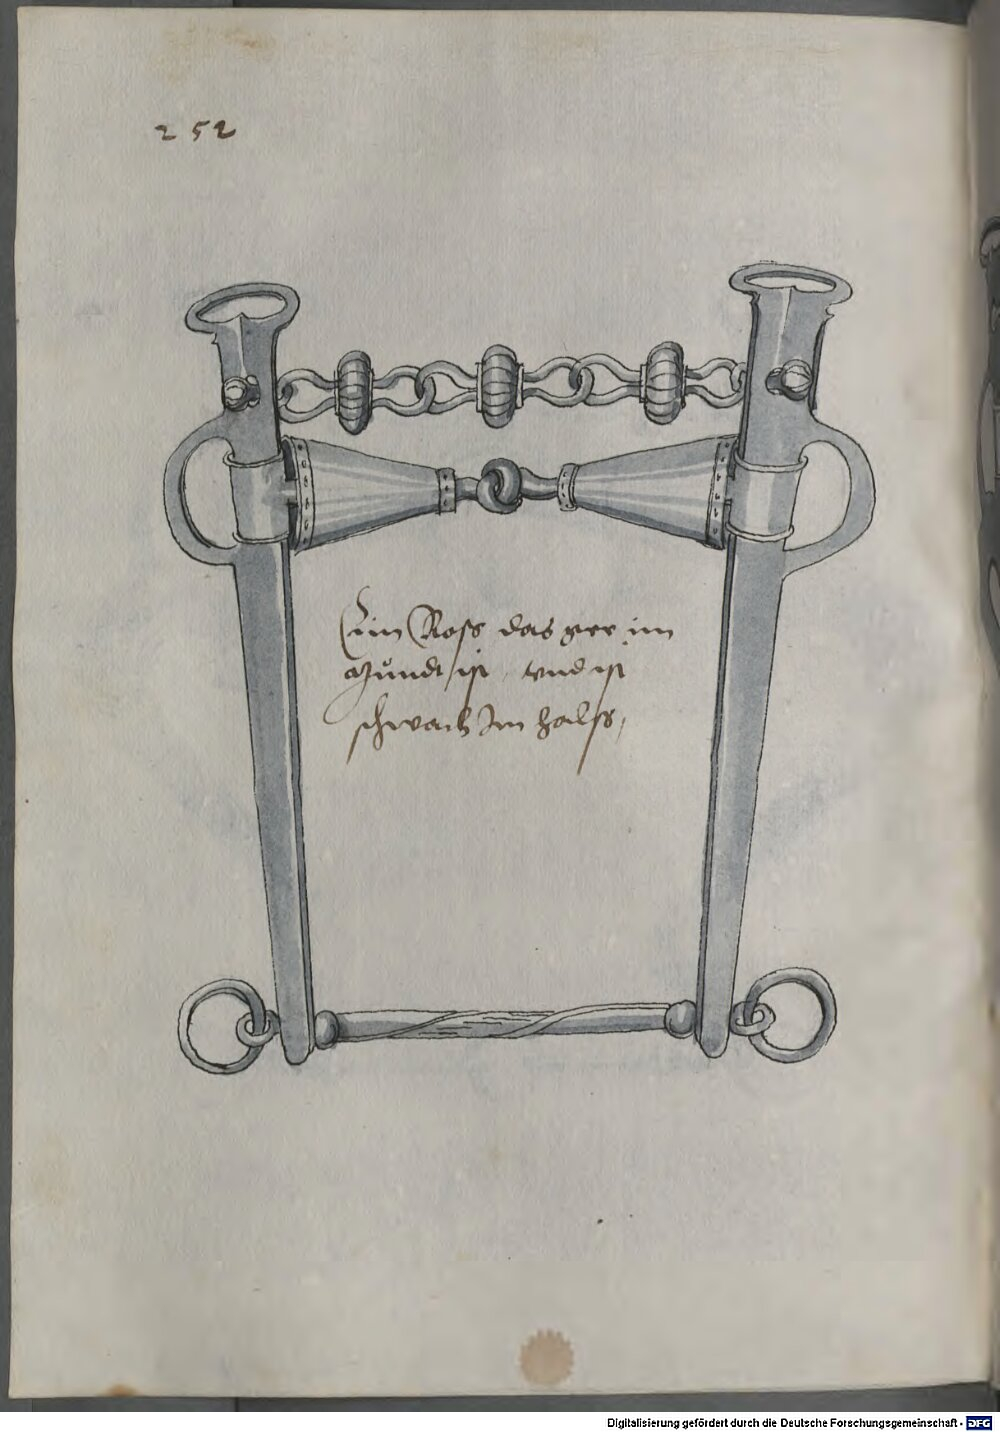 252
Ein Ross das ger im
Mundt ist, vnd ist
schwach Im halss,
Digitalisierung gefördert durch die Deutsche Forschungsgemeinschaft - DFG